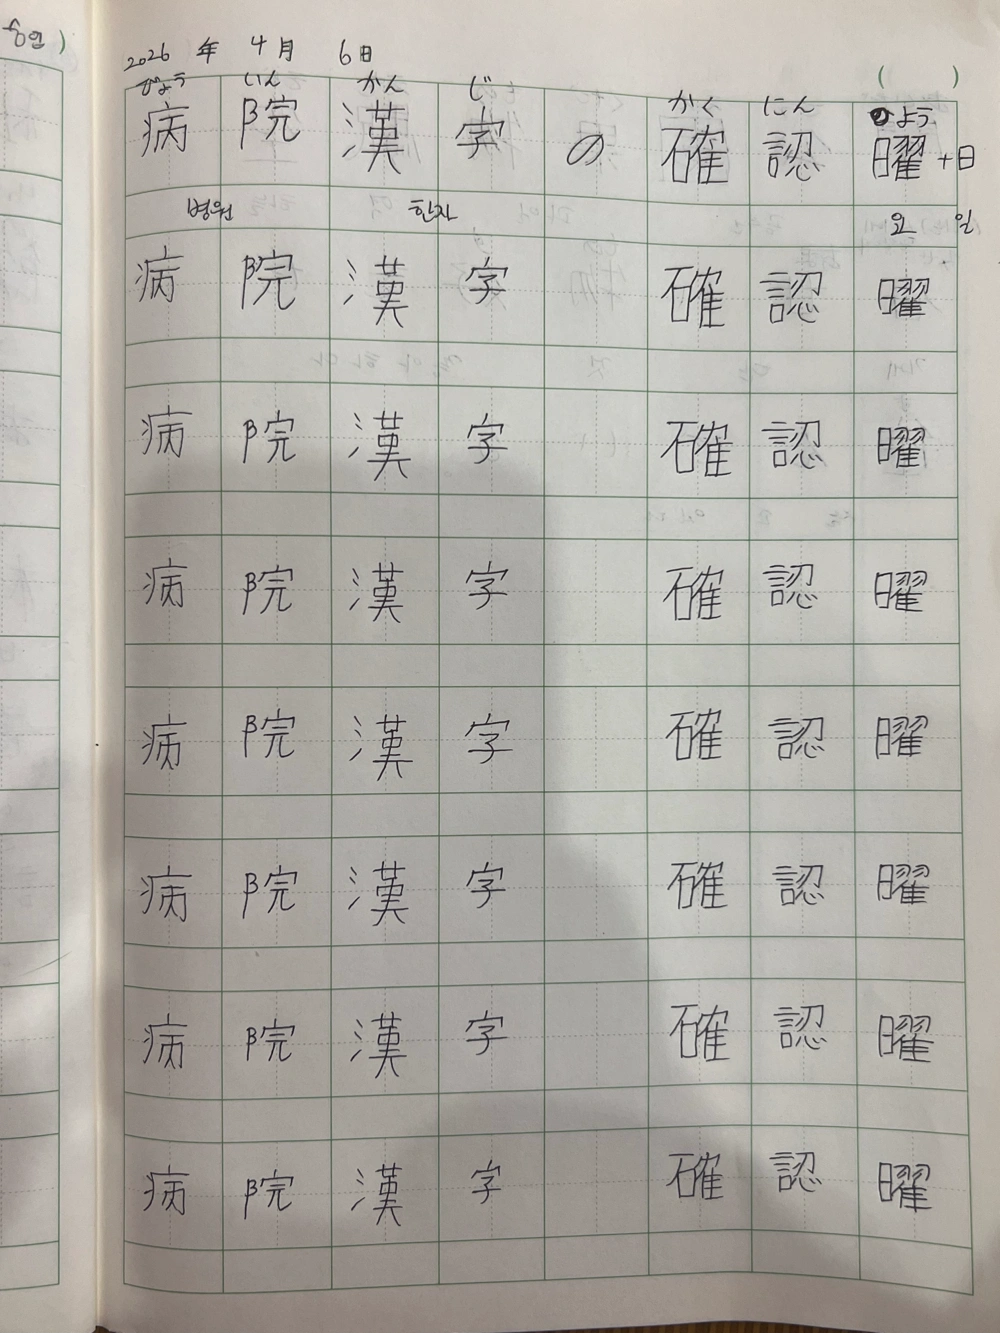 2026 年 4月 6日
( )
びょう いん かん じ かく にん よう
病 院 漢 字 の 確 認 曜+日
병원 한자 요 일
病 院 漢 字 確 認 曜
病 院 漢 字 確 認 曜
病 院 漢 字 確 認 曜
病 院 漢 字 確 認 曜
病 院 漢 字 確 認 曜
病 院 漢 字 確 認 曜
病 院 漢 字 確 認 曜